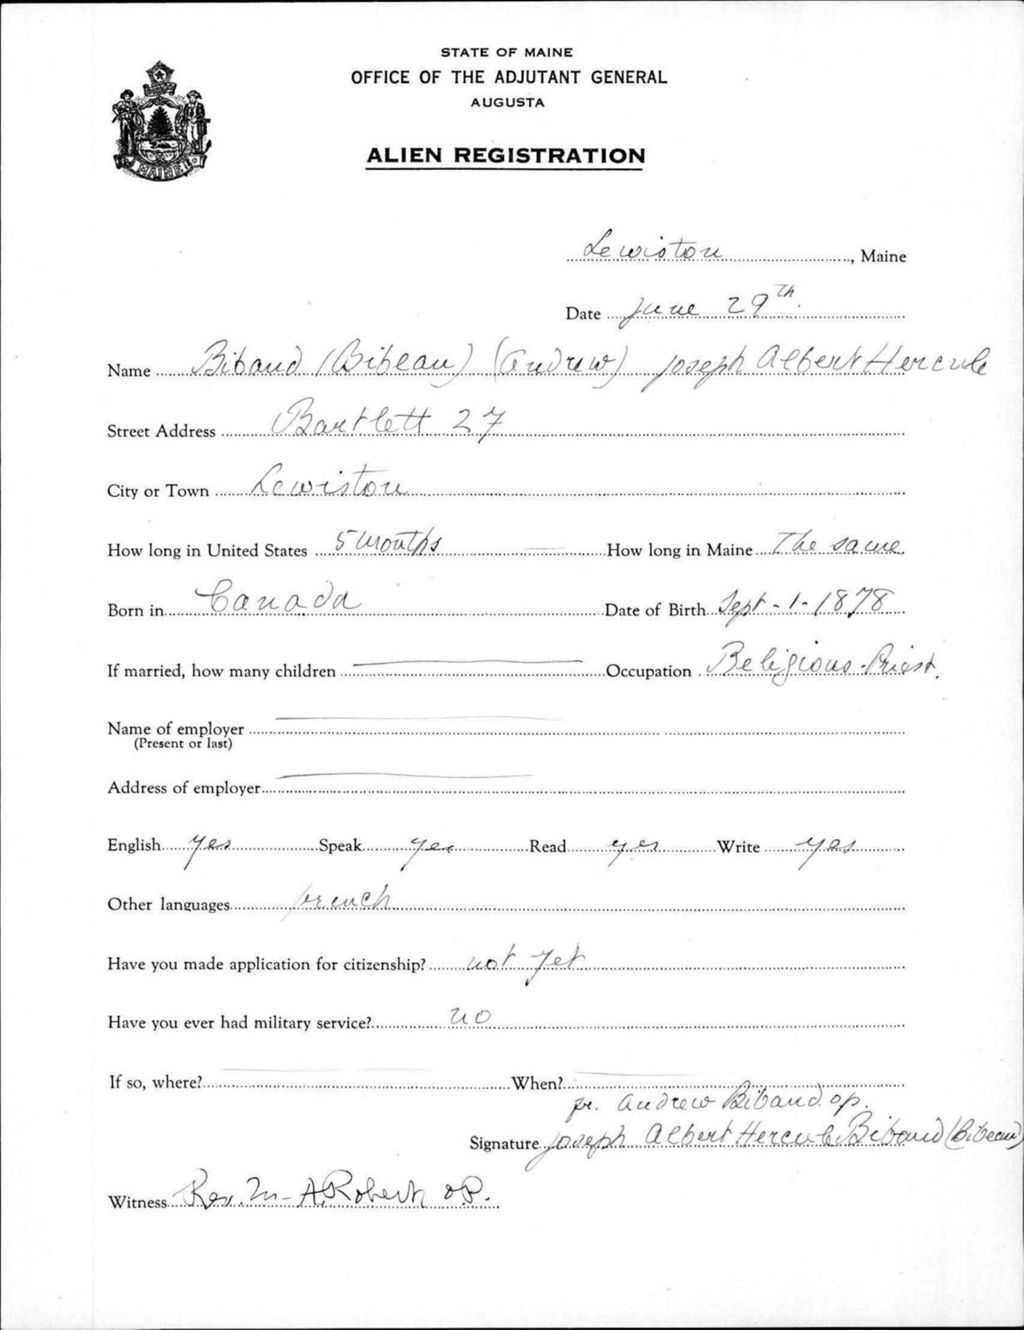 STATE OF MAINE
OFFICE OF THE ADJUTANT GENERAL
AUGUSTA
ALIEN REGISTRATION
MAINE
Lewiston, Maine
Date June 29th.
Name Bibaud (Bibeau) (Andrew) Joseph Albert Hercule
Street Address Bartlett 27
City or Town Lewiston
How long in United States 5 months How long in Maine The same
Born in Canada Date of Birth Sept-1-1878
If married, how many children Occupation Religious-Priest.
Name of employer
(Present or last)
Address of employer
English yes Speak yes Read yes Write yes
Other languages french
Have you made application for citizenship? not yet
Have you ever had military service? no
If so, where? When?
fr. Andrew Bibaud. op.
Signature Joseph Albert Hercule Bibaud (Bibeau)
Witness Rev. M-A. Robert OP.